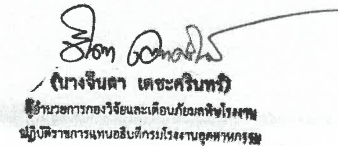 (นางจินดา เดชะศรินทร์)
ผู้อำนวยการกองวิจัยและเตือนภัยมลพิษโรงงาน
ปฏิบัติราชการแทนอธิบดีกรมโรงงานอุตสาหกรรม